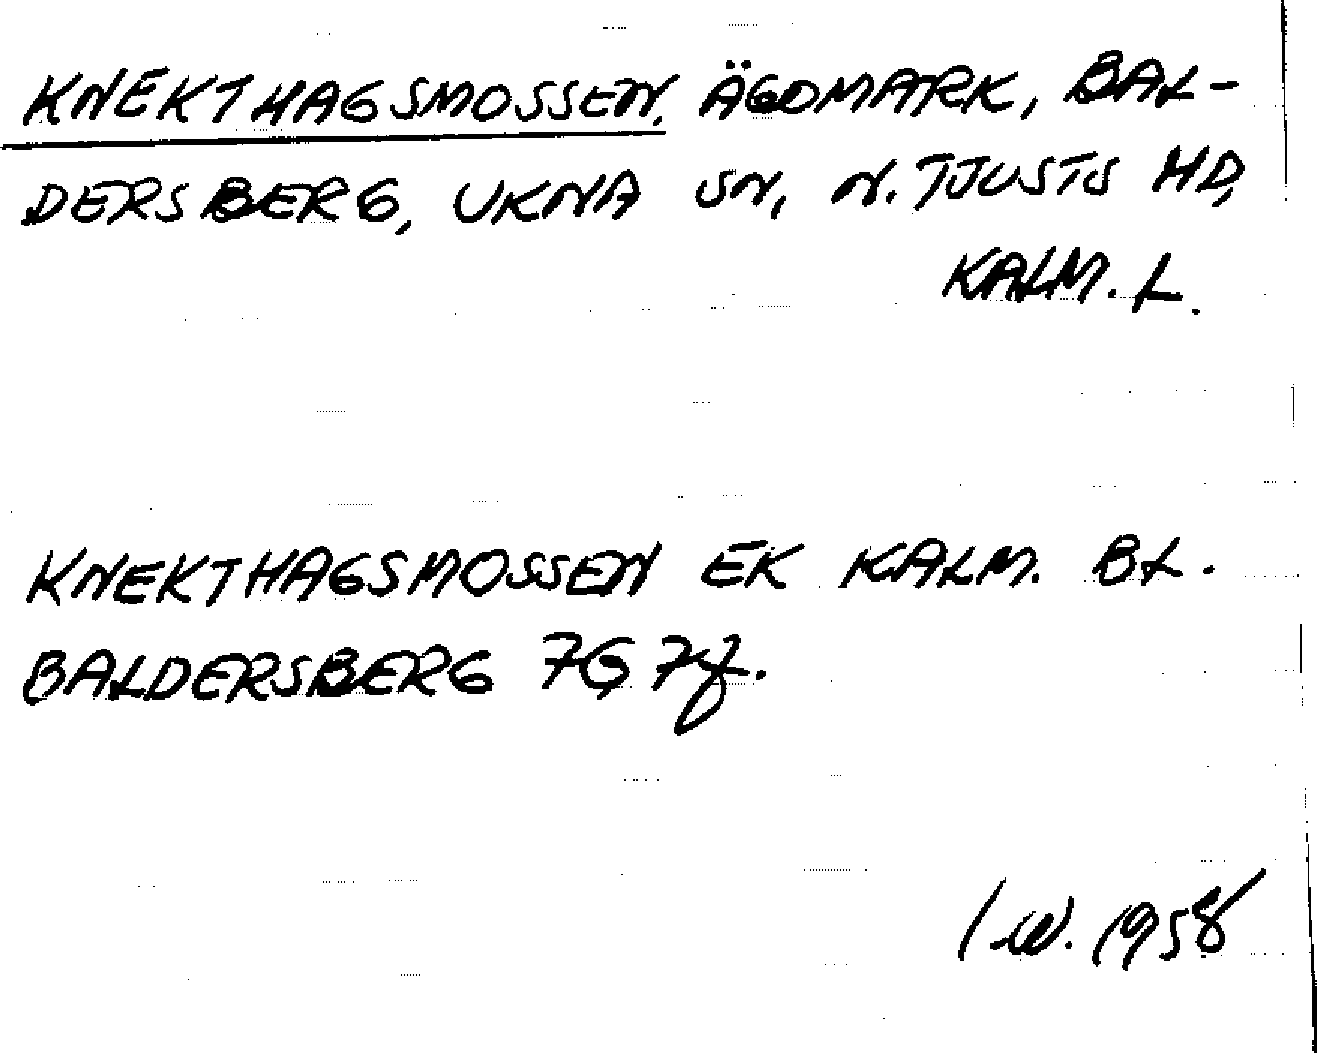 KNEKTHAGSMOSSEN, ÄGOMARK, BAL-
DERSBERG, UKNA SN, N. TJUSTS HD,
KALM. L.
KNEKTHAGSMOSSEN EK KALM. BL.
BALDERSBERG 7G 7f.
1958